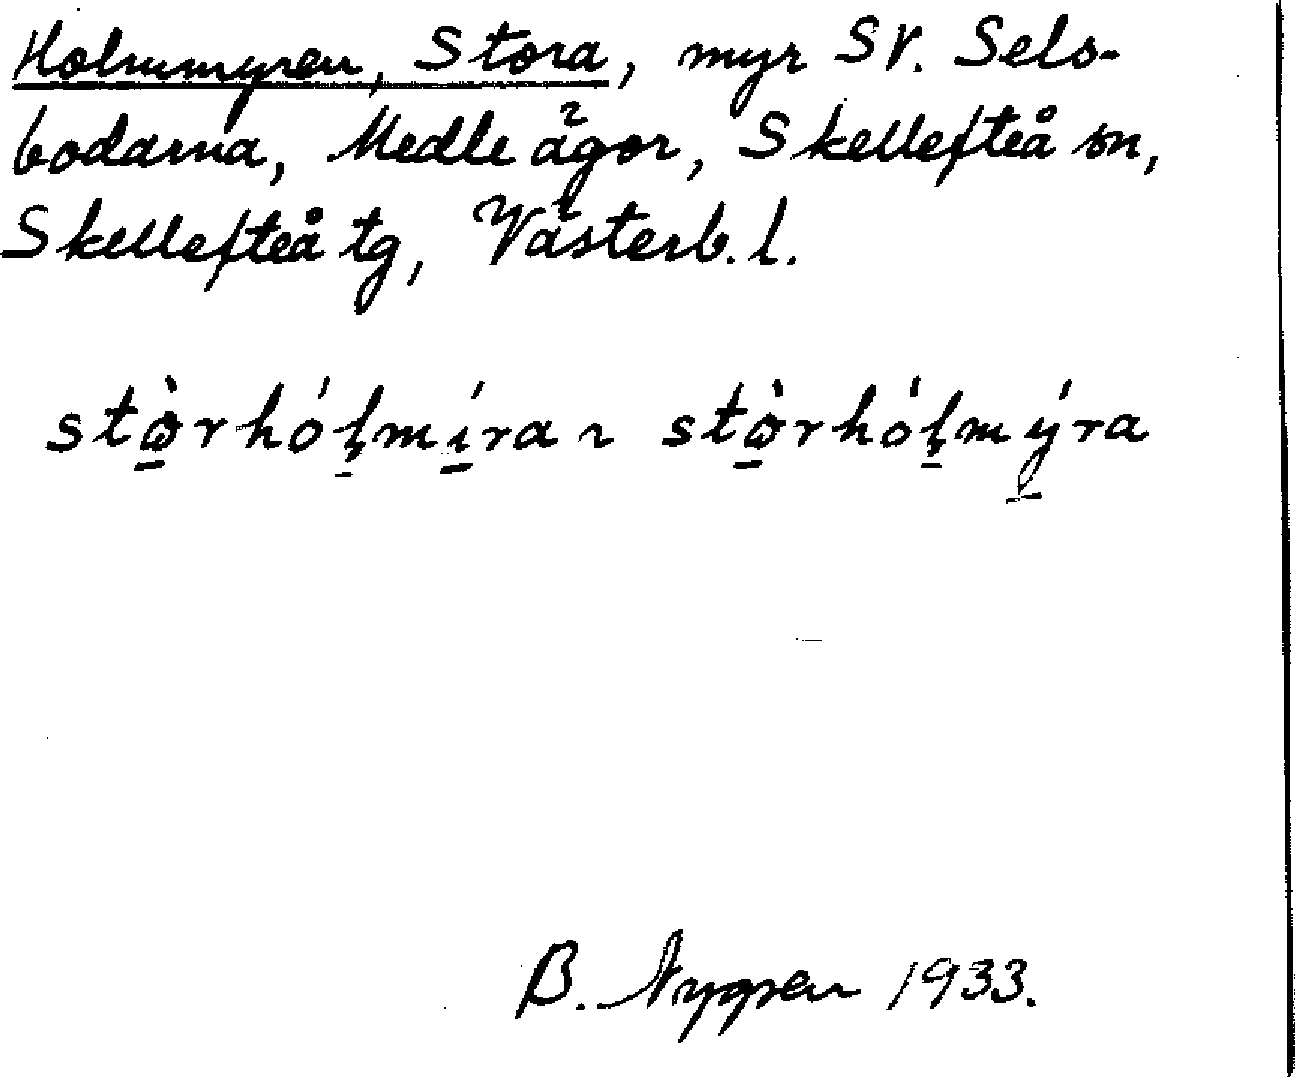 Holmmyren, Stora, myr SV. Sels-
bodarna, Medle ägor, Skellefteå sn,
Skellefteå tg, Västerb. l.
stὼ̱rhól̥̱mí̱ra ~ stὼ̱rhól̥̱mý̱ra
B. Nygren 1933.